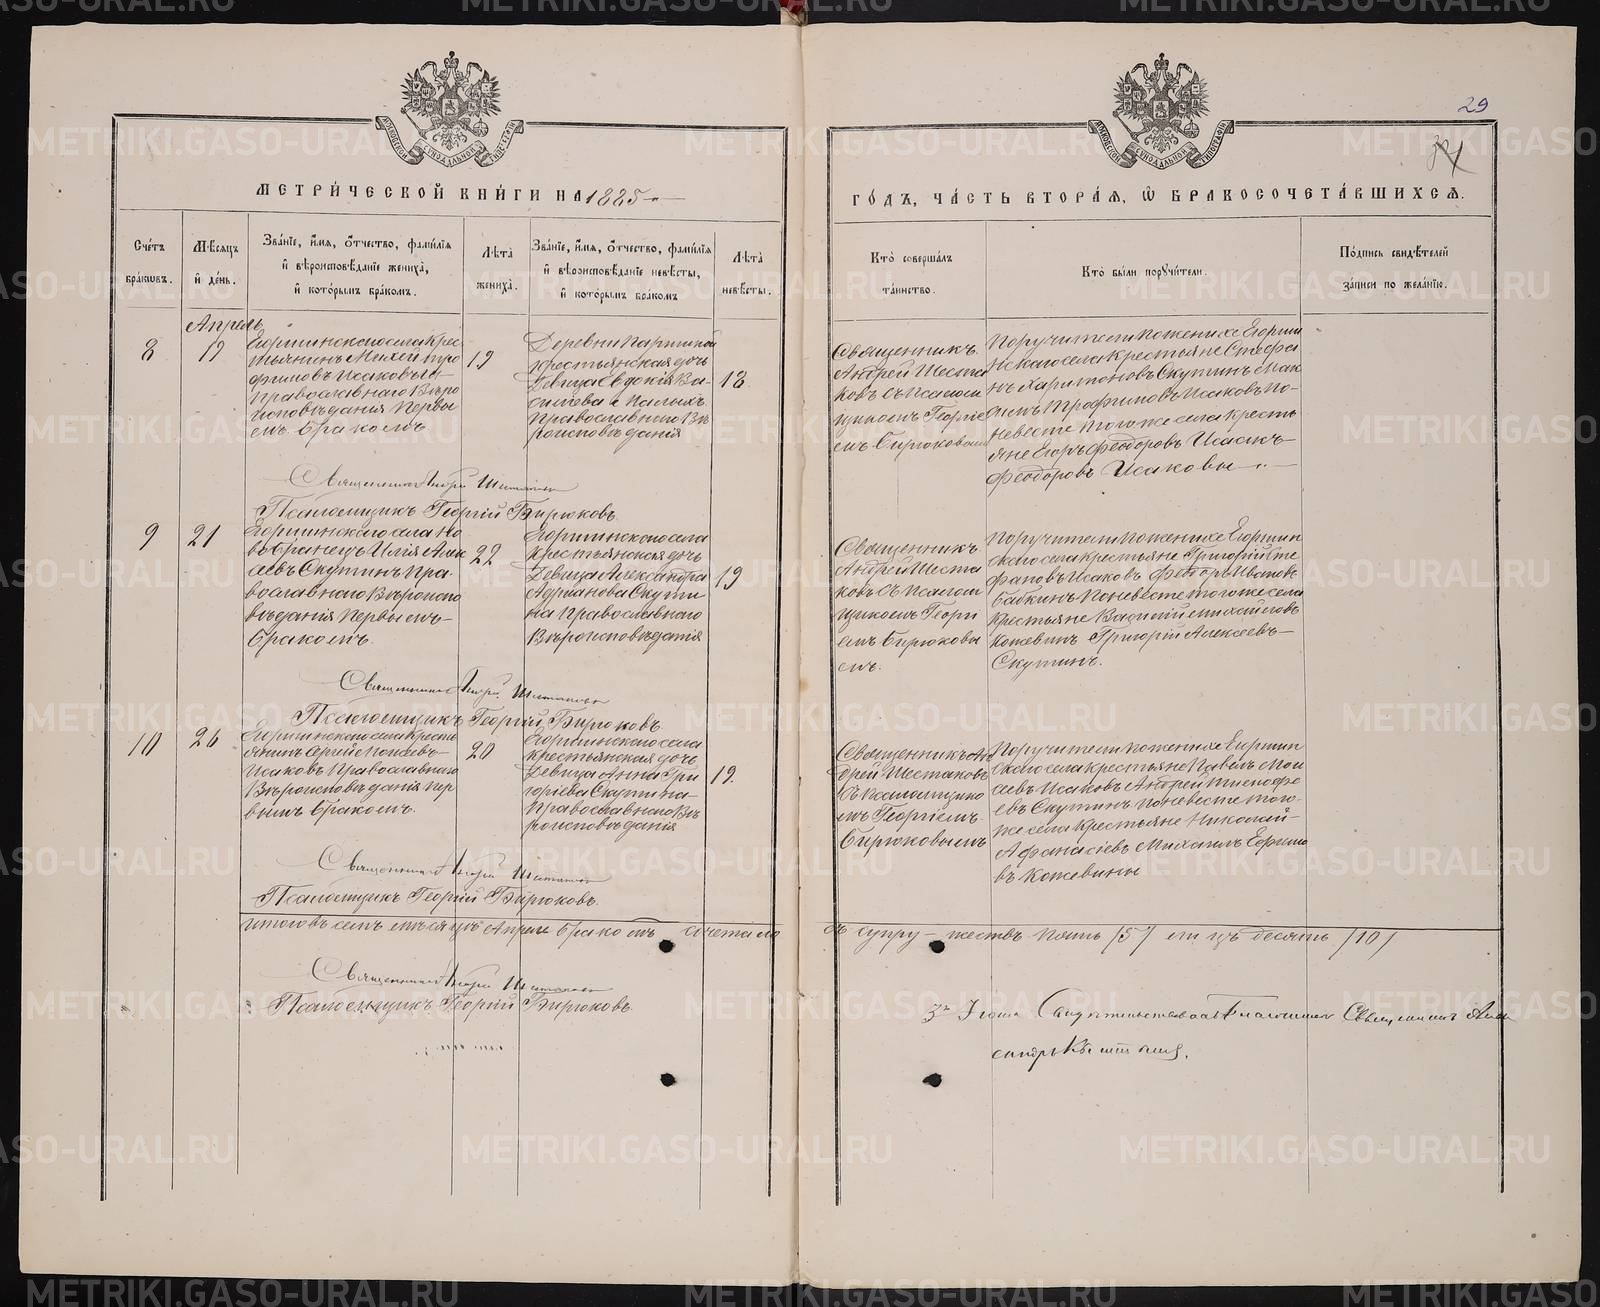 29
МЕТРИ́ЧЕСКОЙ КНИ́ГИ НА 1885
ГО́ДЪ, ЧА́СТЬ ВТОРА́Я, Ѡ БРАКОСОЧЕТА́ВШИХСЯ.
Сче́тъ бра́кѡвъ.
Мѣ́сяцъ и҆ де́нь.
Зва́нїе, и҆́мя, о҆́тчество, фами́лїя
и҆ вѣроисповѣ́данїе жениха̀,
и҆ кото́рымъ бра́комъ.
Лѣ́та жениха̀.
Зва́нїе, и҆́мя, о҆́тчество, фами́лїя
и҆ вѣроисповѣ́данїе невѣ́сты,
и҆ кото́рымъ бра́комъ
Лѣ́та невѣ́сты.
Кто̀ соверша́лъ
та́инство.
Кто̀ бы́ли порꙋчи́тели.
По́дпись свидѣ́телей
за́писи по жела́нїю.
Апрель
8
19
Егоршинскаго села крес
тьянинъ Михей Тро
фимовъ Исаковъ
Православнаго Вѣро
исповѣданія Первы
мъ бракомъ
19
Деревни
крестьянская дочь
девица Евдокія Ва-
сильева
Православнаго Вѣ
роисповѣданія
18
Священникъ
Андрей Шеста
ковъ съ псалом
щикомъ Георгіе
мъ Бирюковымъ
Поручители по женихе Егорши
нскаго села крестьяне Стефа
нъ Харитоновъ Скутинъ Мак
симъ Трофимовъ Исаковъ по
невесте того же села кресть
яне Егоръ Феодоровъ Исаакъ
Феодоровъ Исаковы
Священникъ Андрей Шестаковъ
Псаломщикъ Георгій Бирюковъ.
9
21
Егоршинскаго села Но
вобранецъ Илія Алек
сеевъ Скутинъ Пра-
вославнаго Вѣроиспо
вѣданія Первымъ
бракомъ.
22
Егоршинскаго села
крестьянская дочь
девица Александра
Адрианова Скути
на Православнаго
Вѣроисповѣданія
19
Священникъ
Андрей Шеста
ковъ съ псалом
щикомъ Георгі
емъ Бирюковы
мъ.
Поручители по женихе Егоршин
скаго села крестьяне Григорій Сте
фановъ Исаковъ Феодоръ Ивановъ
Бабкинъ по невесте того же села
крестьяне Василій Михайловъ
Кожевинъ Григорій Алексеевъ
Скутинъ.
Священникъ Андрей Шестаковъ
Псаломщикъ Георгій Бирюковъ.
10
26
Егоршинскаго села кресть
янинъ Сергей Моисеевъ
Исаковъ Православнаго
Вѣроисповѣданія пер
вымъ бракомъ.
20
Егоршинскаго села
крестьянская дочь
девица Анна Гри
горіева Скутина
Православнаго Вѣ
роисповѣданія
19.
Священникъ Ан
дрей Шестаковъ
съ псаломщико
мъ Георгіемъ
Бирюковымъ
Поручители по женихе Егоршин
скаго села крестьяне Павелъ Мои
сеевъ Исаковъ Андрей
евъ Скутинъ по невесте того
же села крестьяне Николай
Афанасіевъ Михаилъ
въ Кожевины
Священникъ Андрей Шестаковъ
Псаломщикъ Георгій Бирюковъ.
Итого въ семъ месяцѣ Апреле бракомъ сочетало
съ супружествъ пять /5/ лицъ десять /10/
Священникъ Андрей Шестаковъ
Псаломщикъ Георгій Бирюковъ.
Священникъ
METRIKI.GASO-URAL.RU